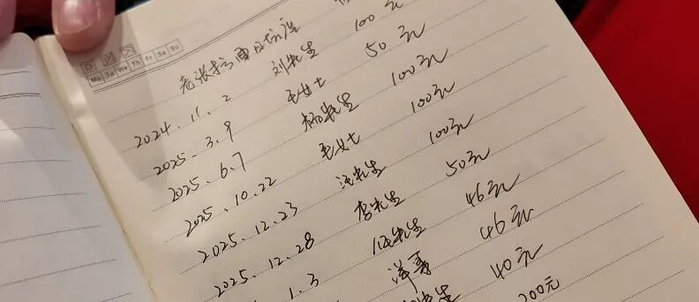 Mo Tu We Th Fr Sa Su
老张拉面
2024.11.2 刘先生 100元
2025.3.9 王女士 50元
2025.6.7 杨先生 100元
2025.10.22 王女士 100元
2025.12.23 汪先生 100元
2025.12.28 李先生 50元
1.3 任先生 46元
洋哥 46元
先生 40元
200元